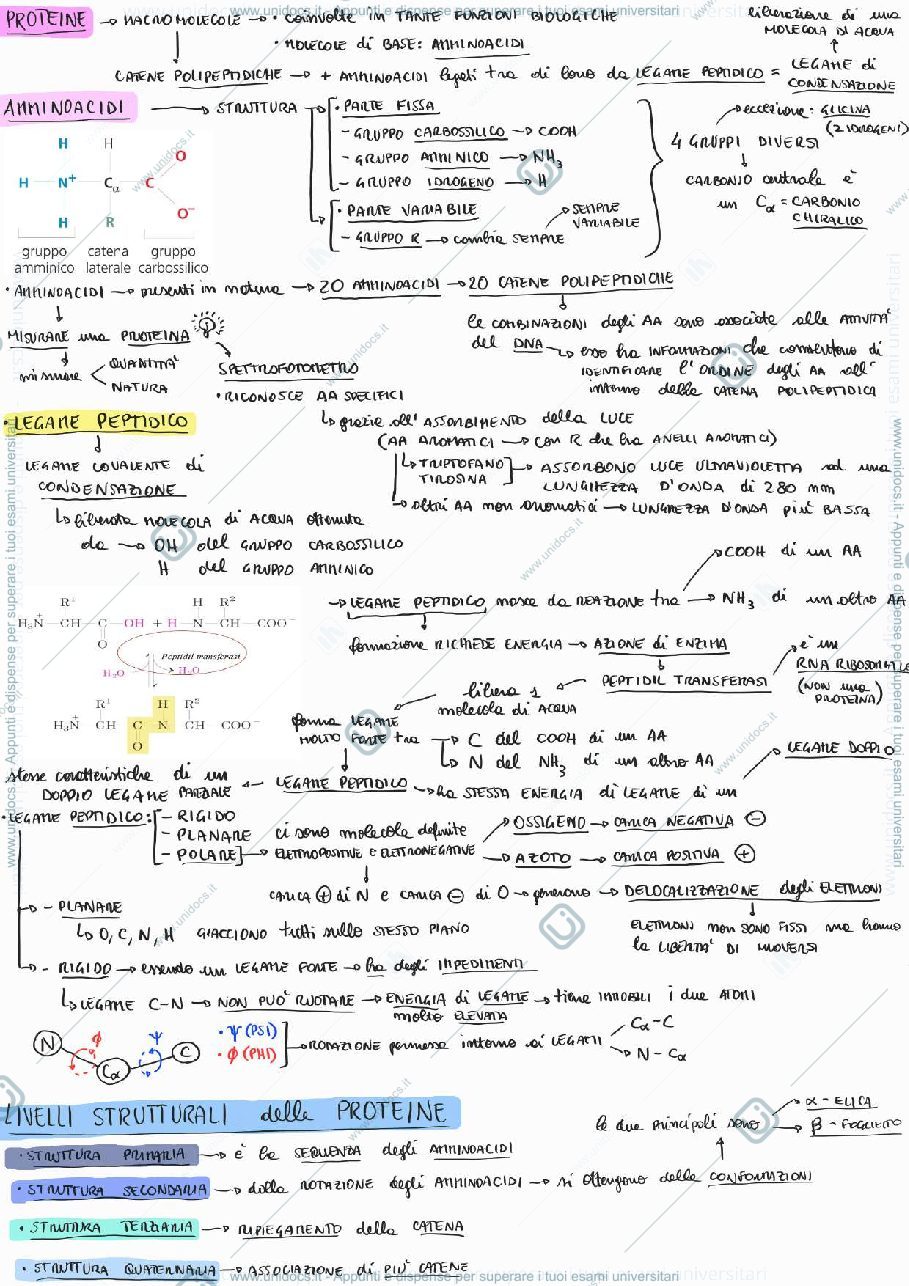 www.unidocs.it - Appunti e dispense per superare i tuoi esami universitari
PROTEINE → MACROMOLECOLE → • COINVOLTE IN TANTE FUNZIONI BIOLOGICHE
liberazione di una
MOLECOLA DI ACQUA
• MOLECOLE di BASE: AMMINOACIDI
CATENE POLIPEPTIDICHE → + AMMINOACIDI legati tra di loro da LEGAME PEPTIDICO = LEGAME di
CONDENSAZIONE
AMMINOACIDI → STRUTTURA
• PARTE FISSA
- GRUPPO CARBOSSILICO → COOH
- GRUPPO AMMINICO → NH3
- GRUPPO IDROGENO → H
• PARTE VARIABILE
- GRUPPO R → cambia SEMPRE
SEMPRE
VARIABILE
4 GRUPPI DIVERSI
eccezione: GLICINA
(2 IDROGENI)
CARBONIO centrale è
un Cα = CARBONIO
CHIRALICO
H H O
H N+ Cα C
H R O-
gruppo catena gruppo
amminico laterale carbossilico
• AMMINOACIDI → presenti in natura → 20 AMMINOACIDI → 20 CATENE POLIPEPTIDICHE
le COMBINAZIONI degli AA sono associate alle ATTIVITA'
del DNA → esso ha INFORMAZIONI che consentono di
IDENTIFICARE l'ORDINE degli AA all'
interno della CATENA POLIPEPTIDICA
MISURARE una PROTEINA
misurare
QUANTITA'
NATURA
SPETTROFOTOMETRO
• RICONOSCE AA SPECIFICI
↳ grazie all'ASSORBIMENTO della LUCE
(AA AROMATICI → con R che ha ANELLI AROMATICI)
↳ TRIPTOFANO
TIROSINA
→ ASSORBONO LUCE ULTRAVIOLETTA ad una
LUNGHEZZA D'ONDA di 280 nm
→ altri AA non aromatici → LUNGHEZZA D'ONDA più BASSA
• LEGAME PEPTIDICO
LEGAME COVALENTE di
CONDENSAZIONE
↳ liberata MOLECOLA di ACQUA ottenuta
da → OH del GRUPPO CARBOSSILICO
H del GRUPPO AMMINICO
R1 H R2
H3N+ — CH — C — OH + H — N — CH — COO-
O
Peptidil transferasi
H2O H2O
R1 H R2
H3N+ CH C N CH COO-
O
→ LEGAME PEPTIDICO nasce da REAZIONE tra → NH3 di un altro AA
COOH di un AA
formazione RICHIEDE ENERGIA → AZIONE di ENZIMA
PEPTIDIL TRANSFERASI
è un
RNA RIBOSOMIALE
(NON una
PROTEINA)
libera 1
molecola di ACQUA
forma LEGAME
MOLTO FORTE tra
→ C del COOH di un AA
↳ N del NH3 di un altro AA
LEGAME PEPTIDICO → ha STESSA ENERGIA di LEGAME di un
LEGAME DOPPIO
stesse caratteristiche di un
DOPPIO LEGAME PARZIALE
• LEGAME PEPTIDICO:
- RIGIDO
- PLANARE
- POLARE
ci sono molecole definite
ELETTROPOSITIVE e ELETTRONEGATIVE
OSSIGENO → CARICA NEGATIVA ⊖
AZOTO → CARICA POSITIVA ⊕
CARICA ⊕ di N e CARICA ⊖ di O → generano → DELOCALIZZAZIONE degli ELETTRONI
ELETTRONI non SONO FISSI ma hanno
la LIBERTA' DI MUOVERSI
→ - PLANARE
↳ O, C, N, H GIACCIONO tutti sullo STESSO PIANO
→ - RIGIDO → essendo un LEGAME FORTE → ha degli IMPEDIMENTI
↳ LEGAME C-N → NON PUO' RUOTARE → ENERGIA di LEGAME → tiene IMMOBILI i due ATOMI
molto ELEVATA
N Φ Cα Ψ C
• Ψ (PSI)
• Φ (PHI)
→ ROTAZIONE permessa intorno ai LEGAMI
Cα - C
N - Cα
LIVELLI STRUTTURALI delle PROTEINE
• STRUTTURA PRIMARIA → è la SEQUENZA degli AMMINOACIDI
le due principali sono
α - ELICA
β - FOGLIETTO
• STRUTTURA SECONDARIA → dalla ROTAZIONE degli AMMINOACIDI → si ottengono delle CONFORMAZIONI
• STRUTTURA TERZIARIA → RIPIEGAMENTO della CATENA
• STRUTTURA QUATERNARIA → ASSOCIAZIONE di PIU' CATENE
www.unidocs.it - Appunti e dispense per superare i tuoi esami universitari